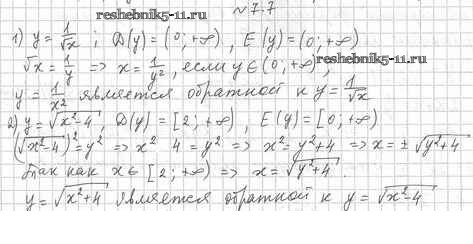 № 7.7
reshebnik5-11.ru
1) y = 1/√x ; D(y) = (0; +∞), E(y) = (0; +∞)
√x = 1/y => x = 1/y², если y ∈ (0; +∞),
reshebnik5-11.ru
y = 1/x² является обратной к y = 1/√x
2) y = √(x²-4), D(y) = [2; +∞), E(y) = [0; +∞)
(√(x²-4))² = y² => x² 4 = y² => x² = y²+4 => x = ± √(y²+4)
Так как x ∈ [2; +∞) => x = √(y²+4).
y = √(x²+4) является обратной к y = √(x²-4)